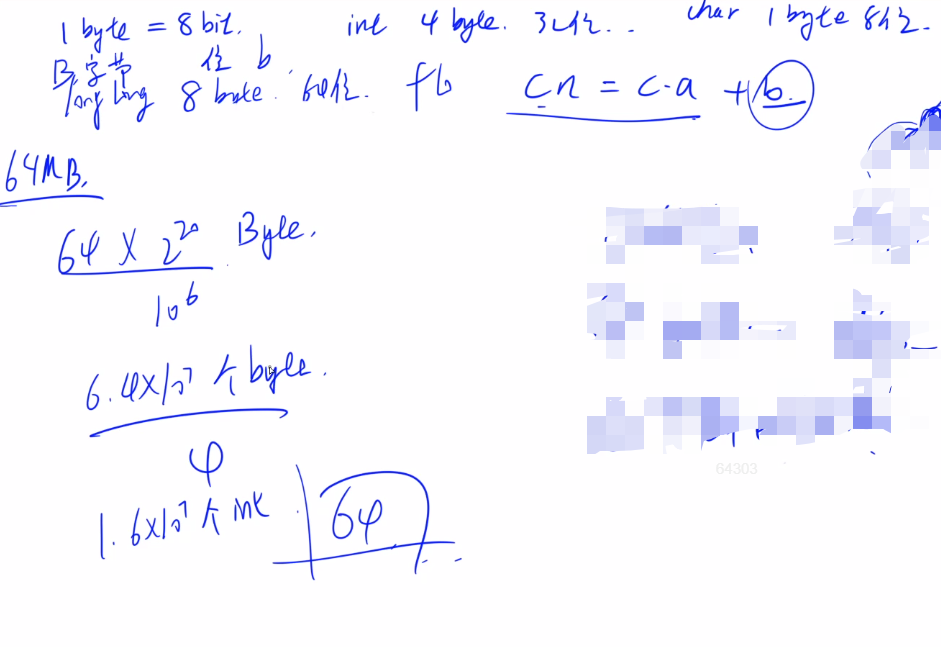 1 byte = 8 bit. int 4 byte. 32位.. char 1 byte 8位.
B 字节 位 b
long long 8 byte. 64位. fb cn = c·a + b.
64MB.
64 × 2^20 Byte.
10^6
6.4×10^7 个 byte.
4
1.6×10^7 个 int 64
64303